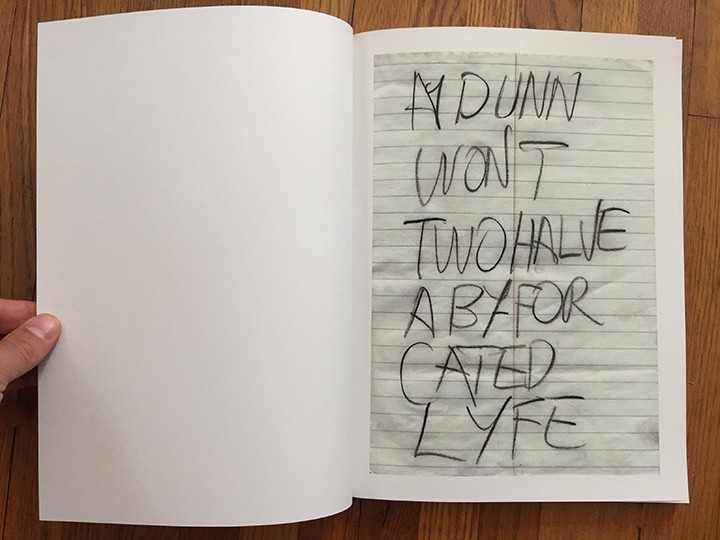 AY DUNN
WON'T
TWO HALVE
A BYFOR
CATED
LYFE